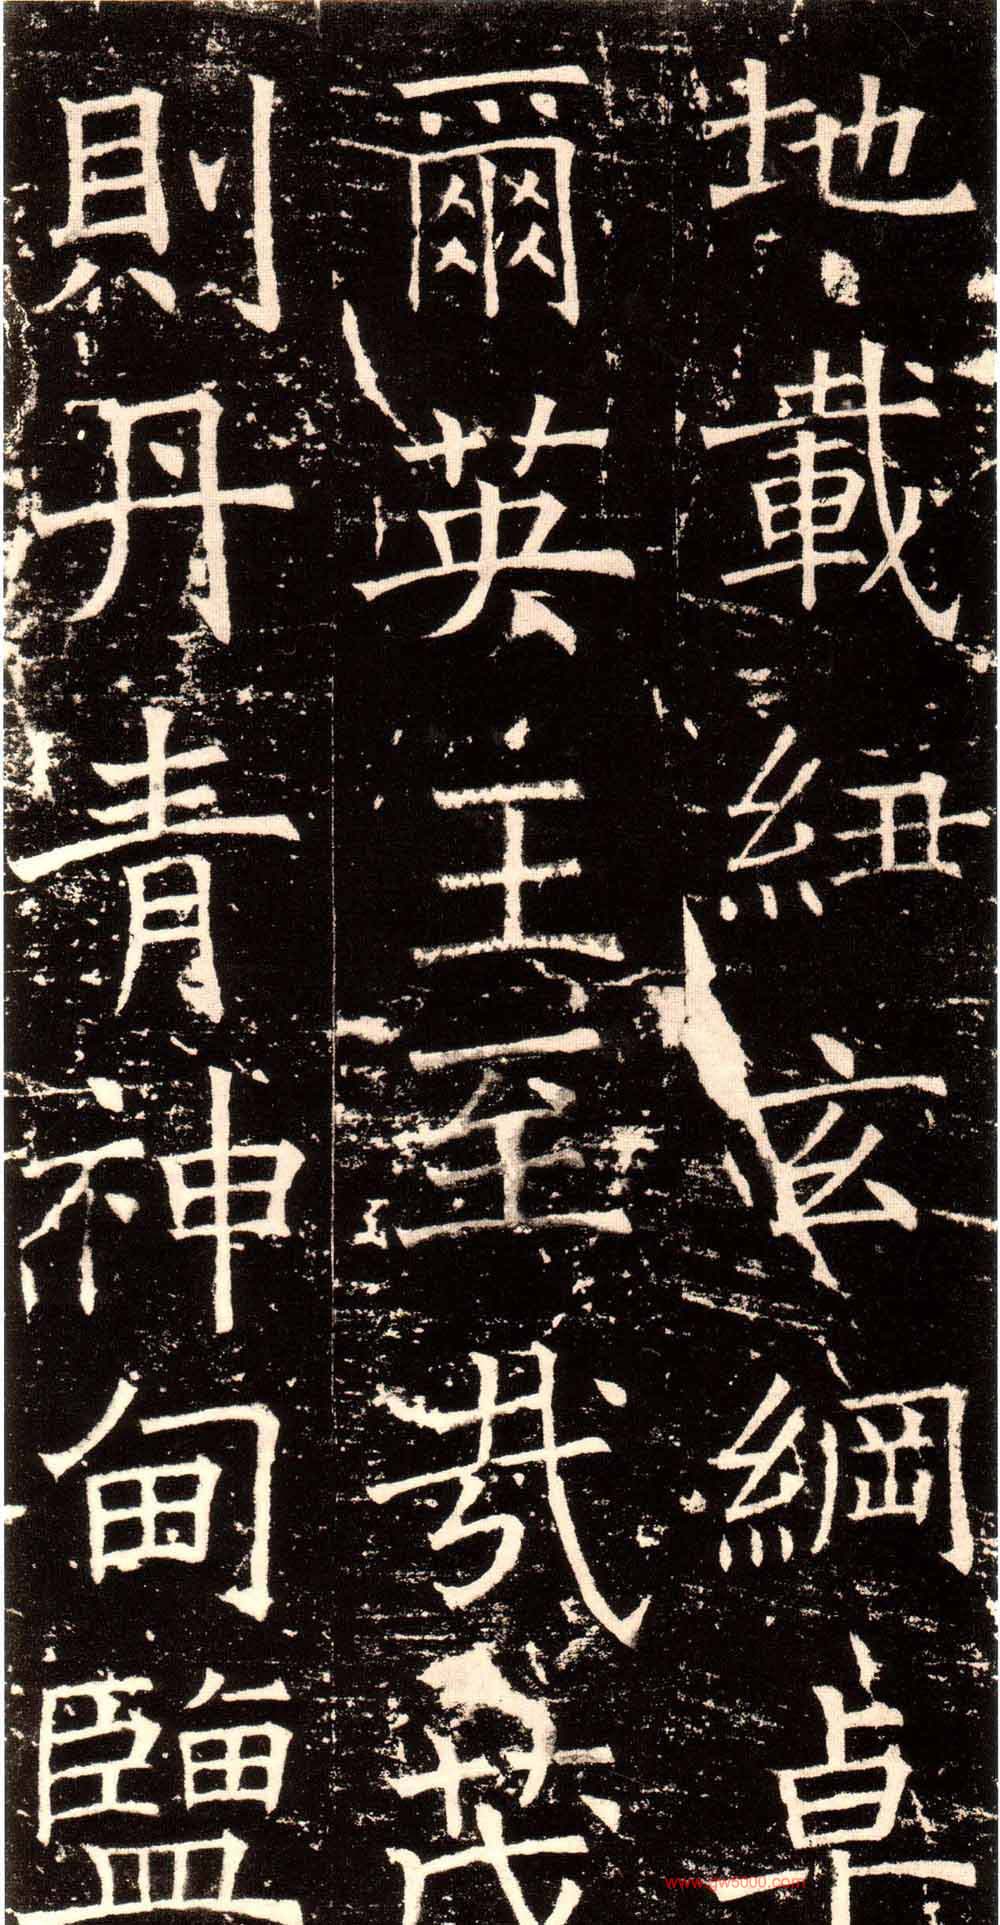 地載紐玄綱卓
爾英王至哉茂
則丹青神甸鹽
www.gw5000.com